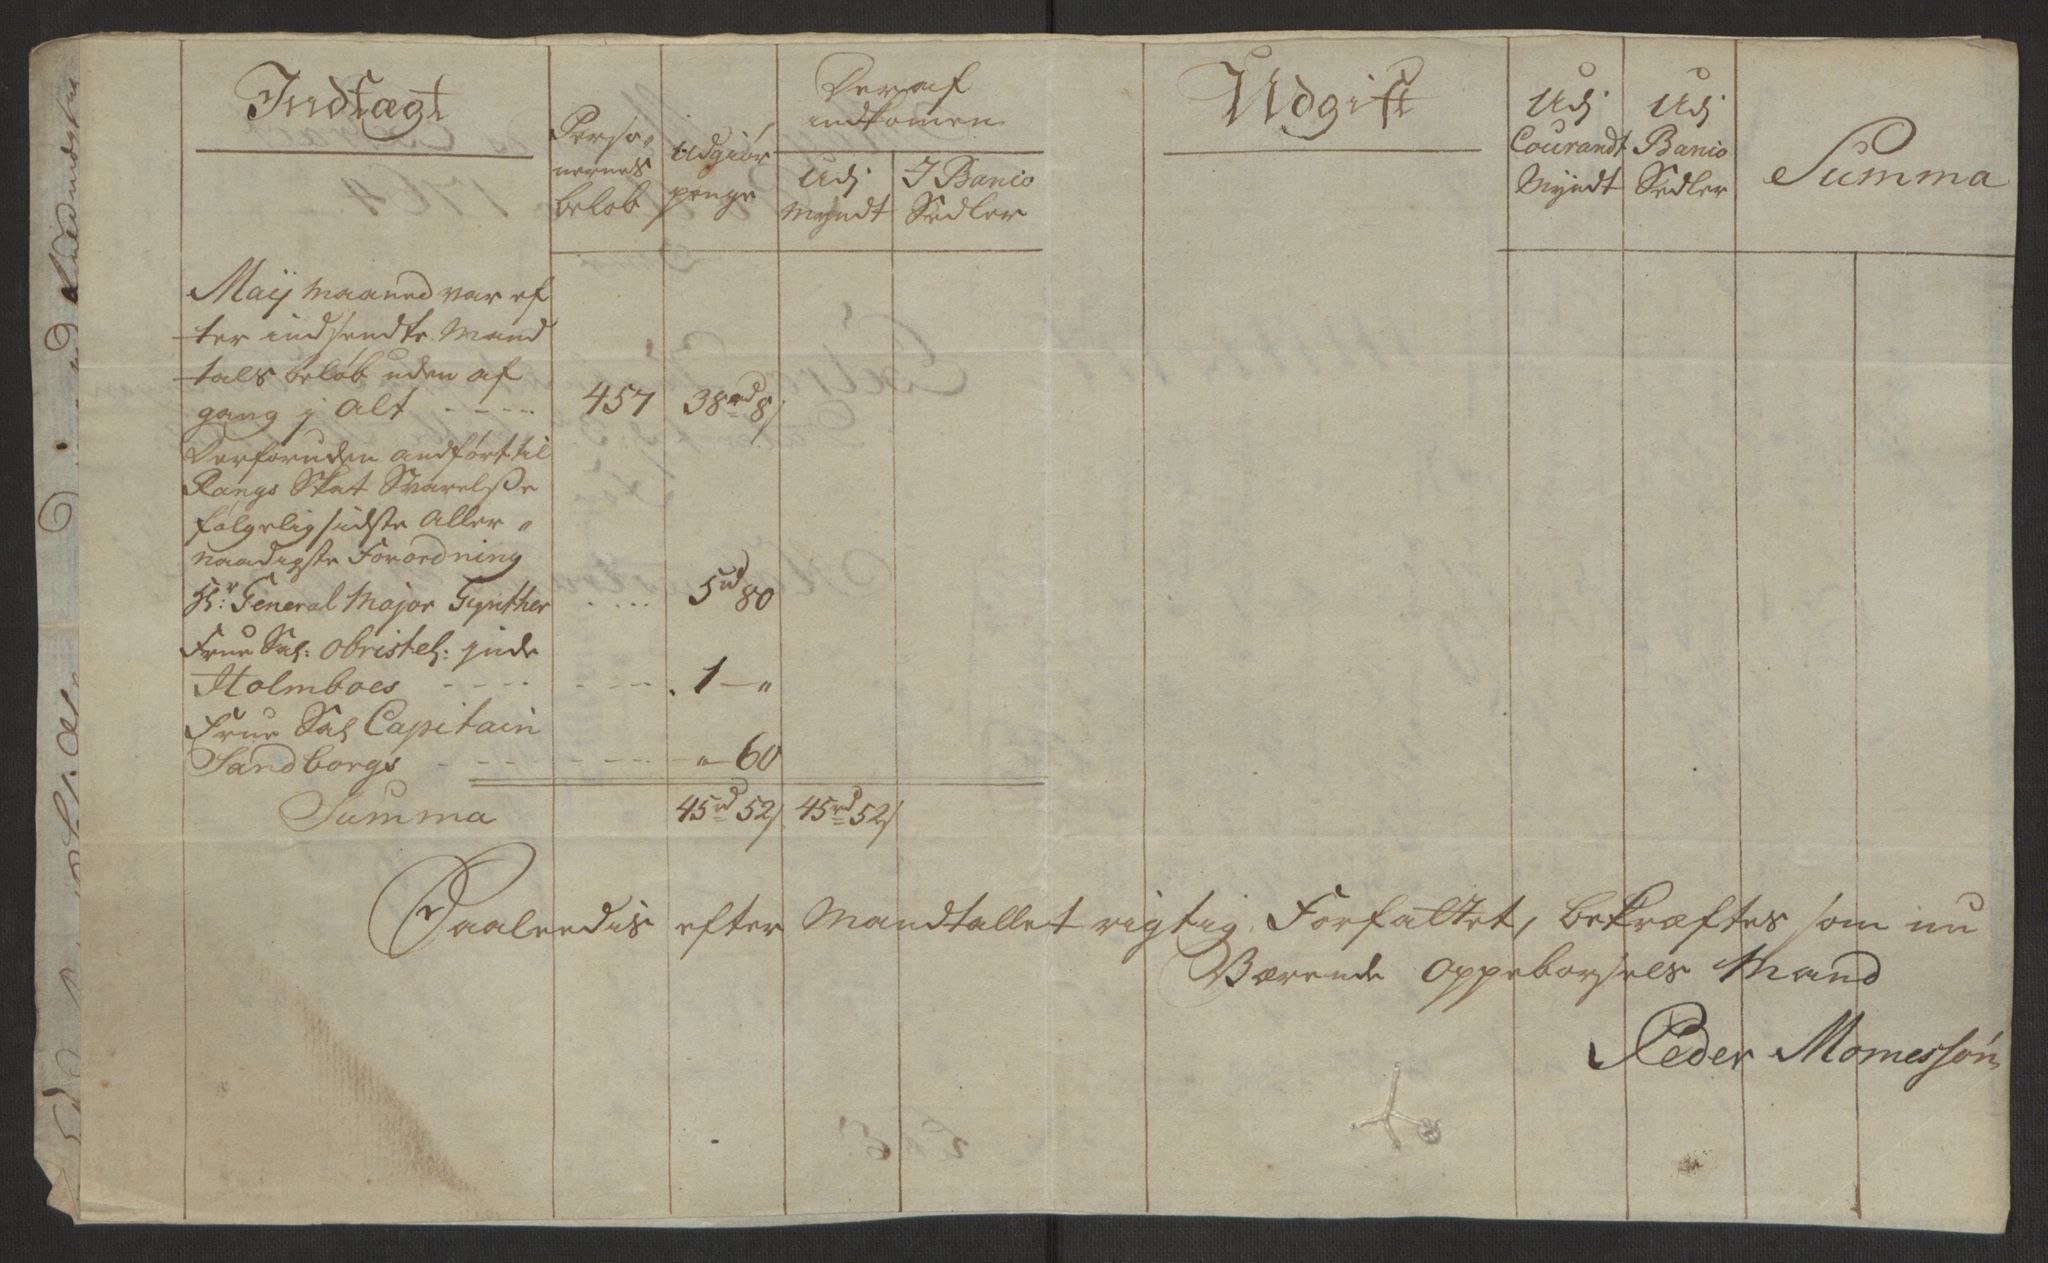 Indtægt
Perso-
nernes
beløb
Udgiør
penge
Deraf
indkomen
Udj
Myndt
J Banco
Sedler
Udgift
Udj
Courandt
Myndt
Udj
Banco
Sedler
Summa
Maij Maaned var ef
ter indsendte Mand
tals beløb uden af
gang j alt - - - - - 457 38 rd 8 s
Derforuden andført til
Rangs Skat Svarelsse
følgelig sidste Aller-
naadigste Forordning
Hr: General Major Gynther . . . . 5 rd 80
Frue Sal: Obristel:
Holmboes - - - - - - - - 1 — "
Frue Sal Capitain
Sandborgs - - - - - - - - " — 60
Summa 45 rd 52 s 45 rd 52 s
Saaleedis efter Mandtallet rigtig Forfattet, bekræftes som nu
Værende Oppeborsels Mand
Peder Momessøn